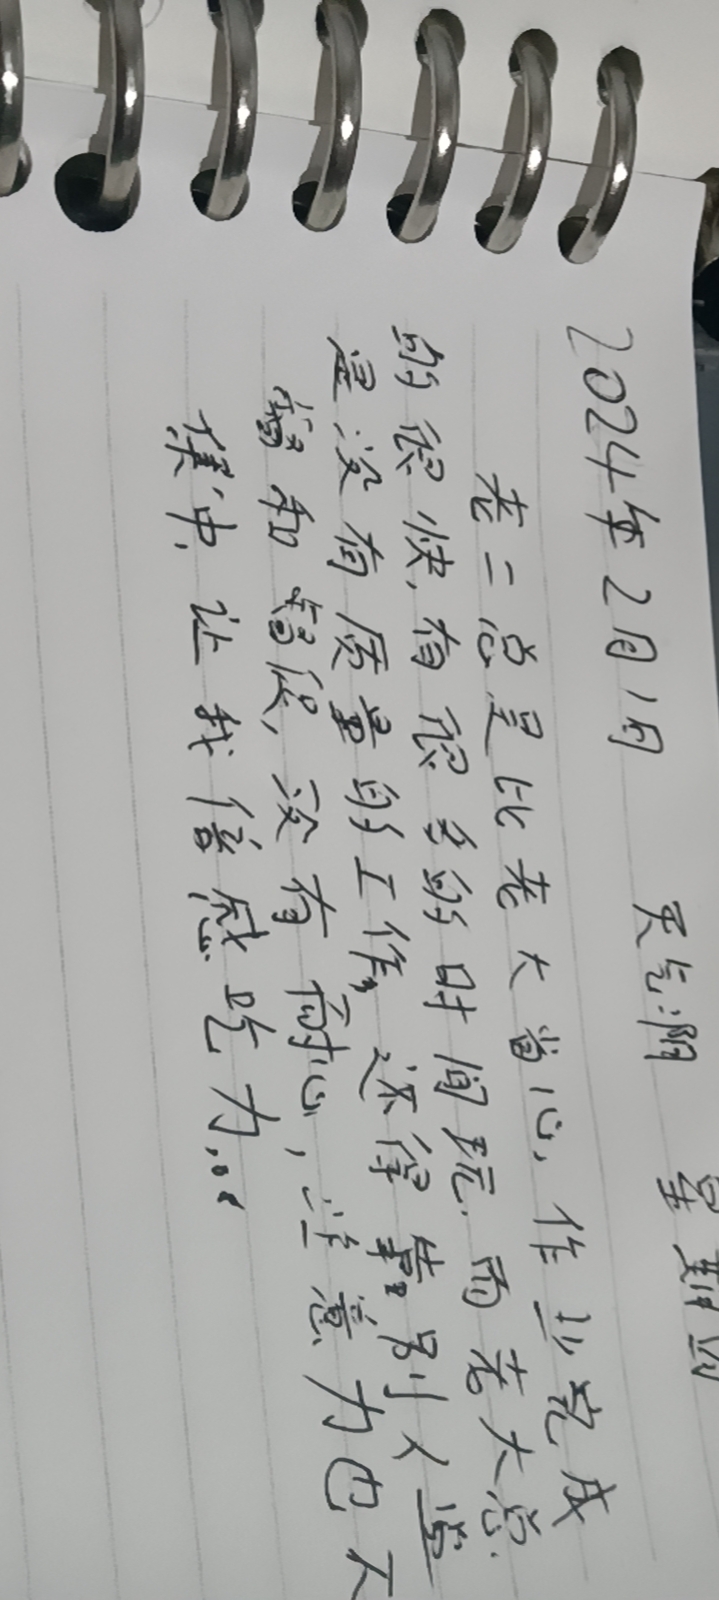 2024年2月1日 天气:阴 星期四
老二总是比老大省心,作业完成
的很快,有很多的时间玩.而老大总
是没有质量的工作,还得靠别人监
督和督促,没有耐心,注意力也不
集中,让我倍感吃力...